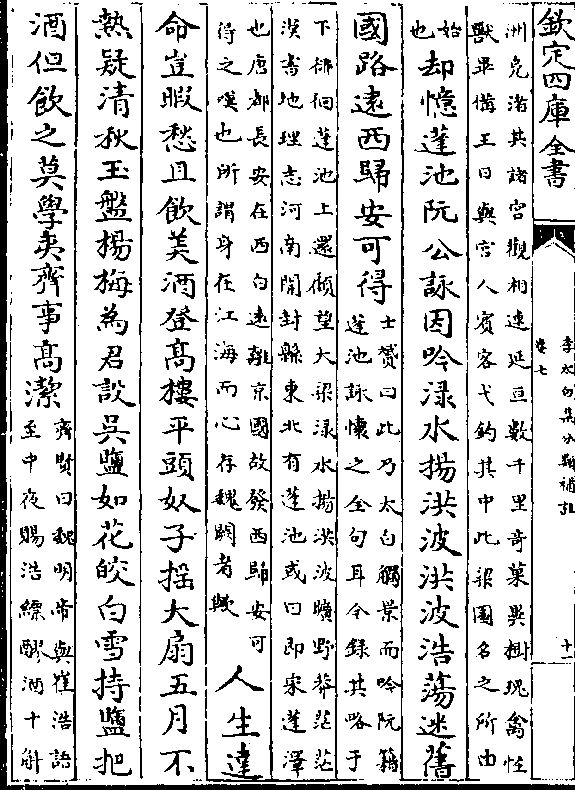 欽定四庫全書
李太白集分類補註
卷七
十一
洲鳧渚其諸宮觀相連延亘數千里奇菓異樹瑰禽怪
獸畢備王日與宫人賓客弋釣其中此梁園名之所由
始
也
却憶蓬池阮公詠因吟渌水揚洪波洪波浩蕩迷舊
國路逺西歸安可得
士贇曰此乃太白觸景而吟阮籍
蓬池詠懐之全句耳今録其略于
下徘徊蓬池上還傾望大梁渌水揚洪波曠野莽茫茫
漢書地理志河南開封縣東北有蓬池或曰即宋蓬澤
也唐都長安在西白逺離京國故發西歸安可
得之嘆也所謂身在江海而心存魏闕者歟
人生達
命豈暇愁且飲美酒登髙樓平頭奴子揺大扇五月不
熱疑清秋玉盤楊梅為君設吳鹽如花皎白雪持鹽把
酒但飲之莫學夷齊事髙潔
齊賢曰魏明帝與崔浩語
至中夜賜浩縹醪酒十斛